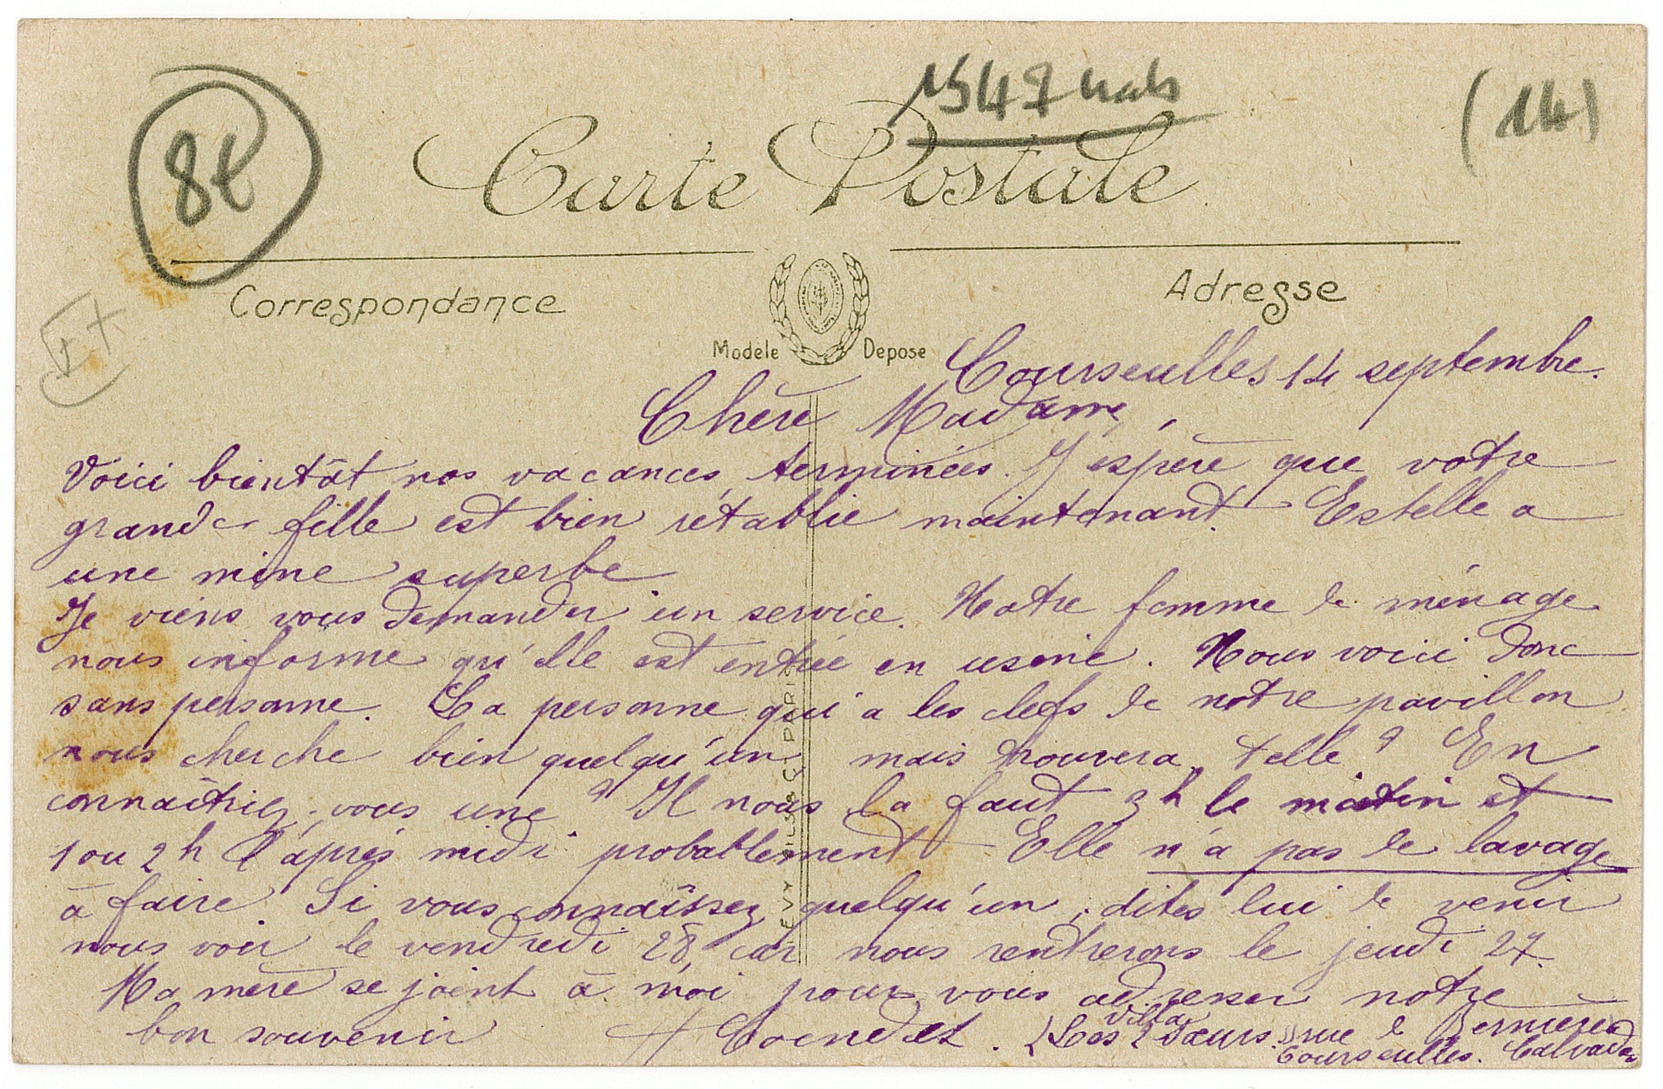 1549 hab
(14)
8t
Carte Postale
Correspondance
Adresse
Modele Depose
Courseulles 14 septembre.
Chère Madame,
Voici bientôt nos vacances terminées. J'espère que votre
grande fille est bien rétablie maintenant. Estelle a
une mine superbe
Je viens vous demander un service. Notre femme de ménage
nous informe qu'elle est entrée en usine. Nous voici donc
sans personne. La personne qui a les clefs de notre pavillon
nous cherche bien quelqu'un mais trouvera t elle ? En
connaîtriez-vous une ? Il nous la faut 3h le matin et
1 ou 2h l'après midi probablement Elle n'a pas le lavage
à faire. Si vous connaissez quelqu'un, dites lui de venir
nous voir le vendredi 28 car nous rentrerons le jeudi 27.
Ma mère se joint à moi pour vous adresser notre
bon souvenir
Villa
"Les 2 Sœurs" rue de Bernières
Courseulles. Calvados